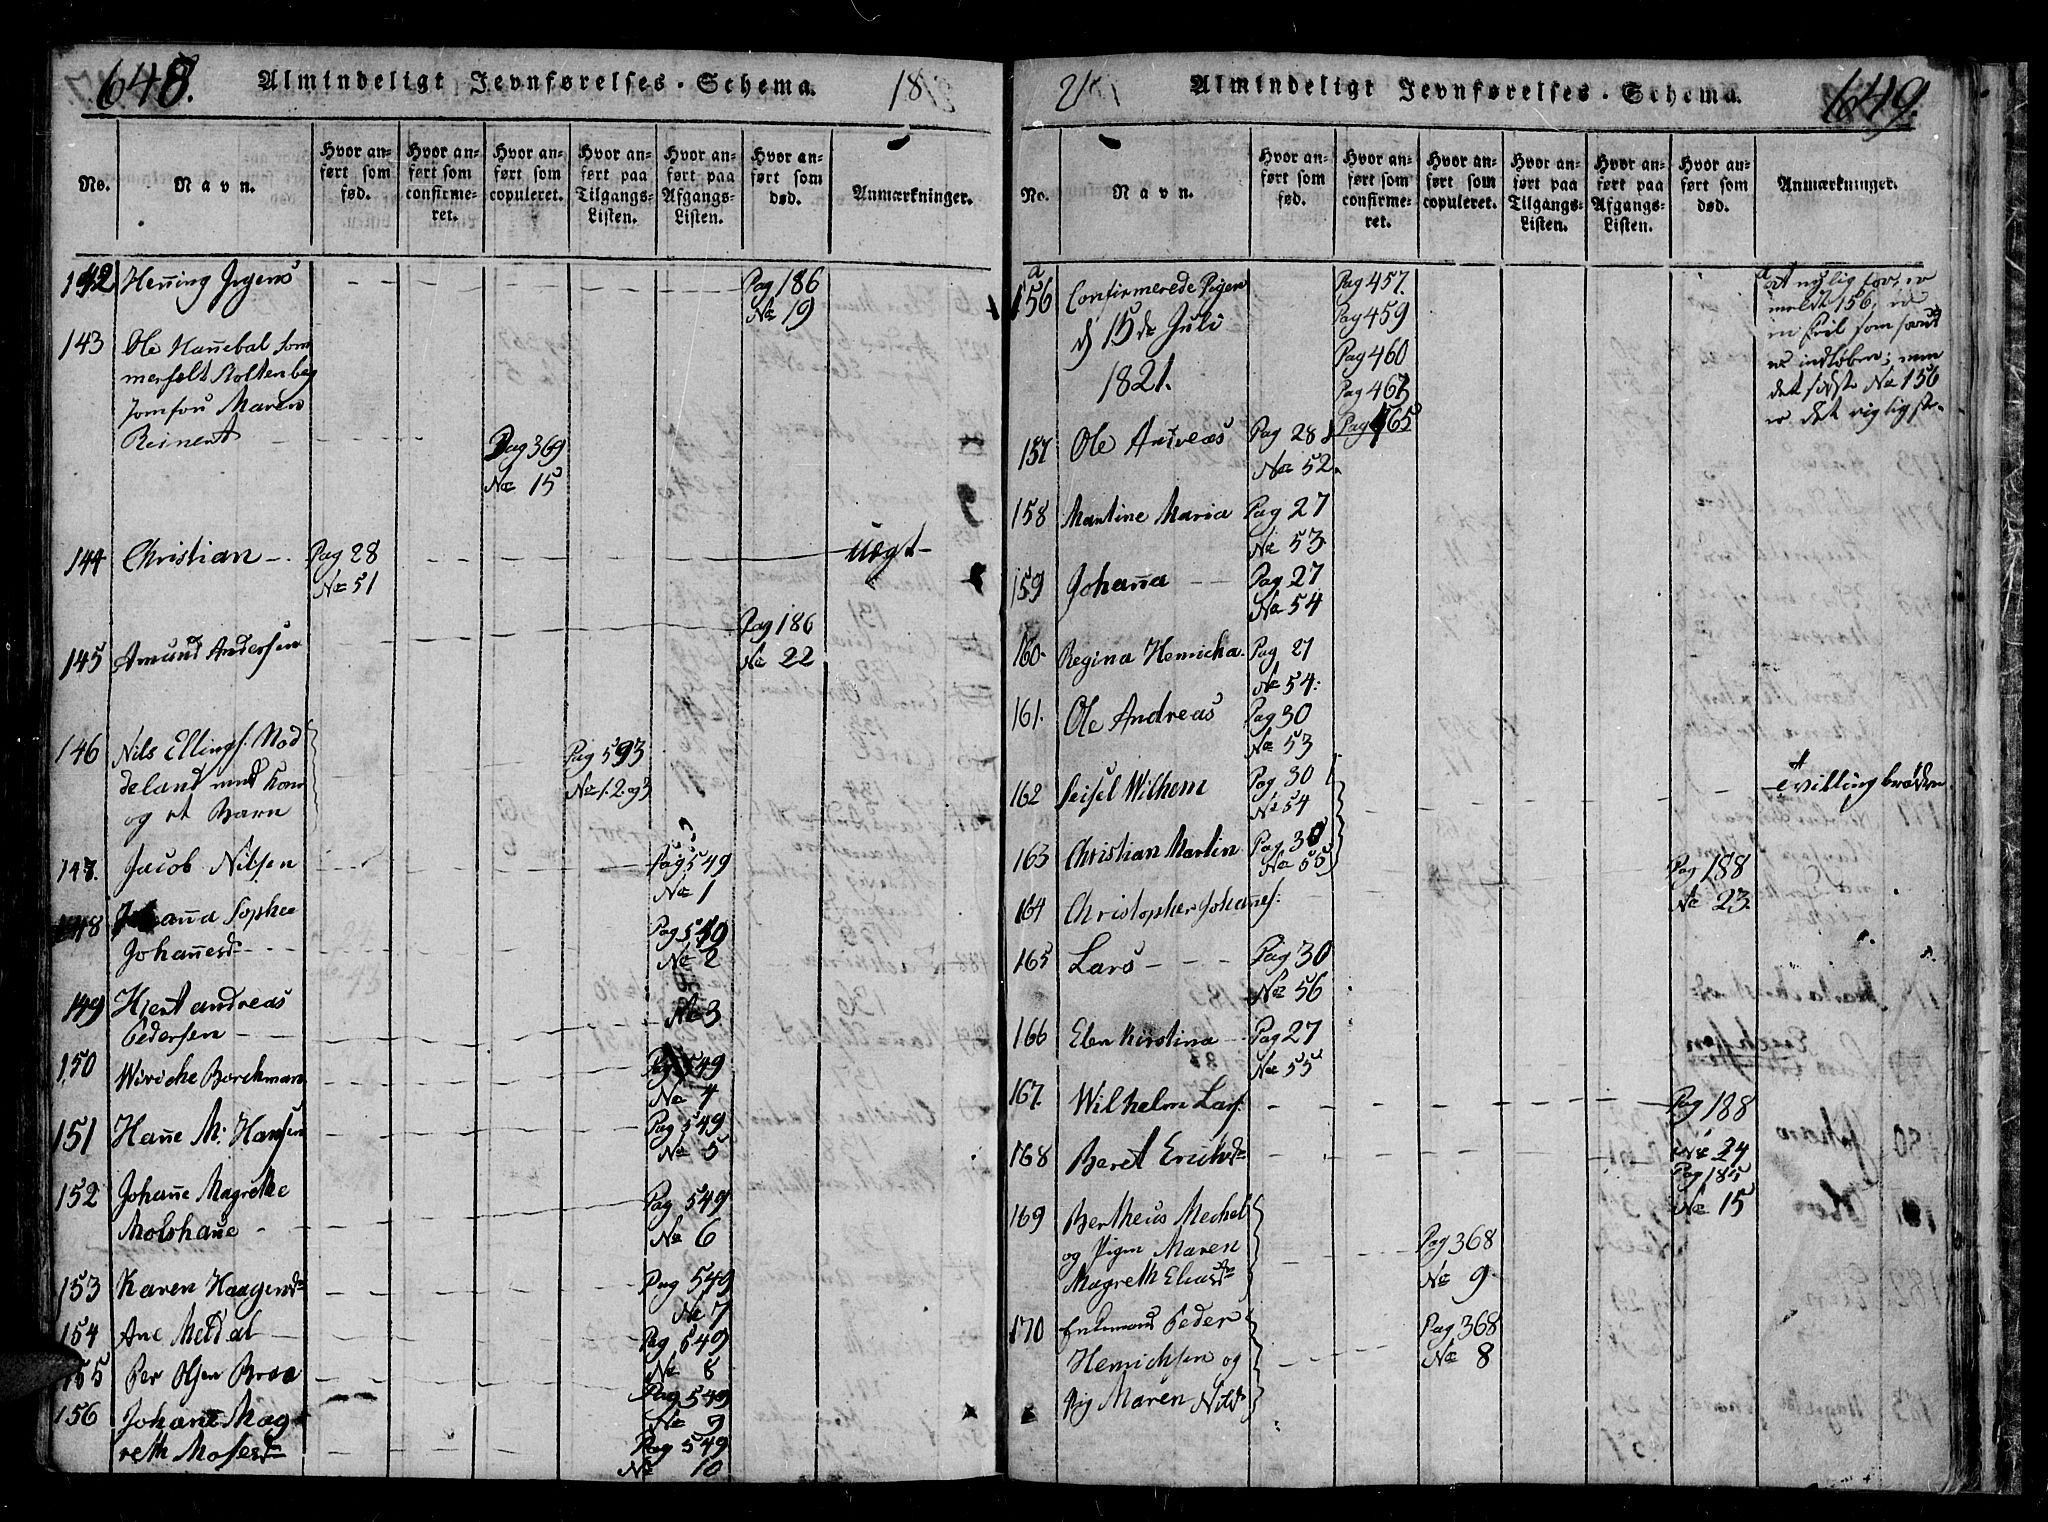 648.
Almindeligt Jevnførelses-Schema.
18
No.
Navn.
Hvor anført som fød.
Hvor anført som confirmeret.
Hvor anført som copuleret.
Hvor anført paa Tilgangs-Listen.
Hvor anført paa Afgangs-Listen.
Hvor anført som død.
Anmærkninger.
142 Henning Jrgens Pag 186
No 19
143 Ole Hannebal Som
merfelt Stoltenberg
Jomfru Maren
Reinert Pag 369
No 15
144 Christian Pag 28 Uægt
No 51
145 Amund Andersen Pag 186
No 22
146 Nils Ellings. Nod
deland med Kone Pag 593
og et Barn No 1.2.og3
147. Jacob Nilsen Pag 549
No 1
148 Johanna Sophee Pag 549
Johannesd No 2
149 Hjert andreas
Pedersen No 3
150 Wiriche Borchman Pag 549
No 4
151 Hanne M. Hansen Pag 549
No 5
152 Johanne Magrethe Pag 549
Molshane No 6
153 Karen Haagensd Pag 549
No 7
154 Ane Meldal Pag 549
No 8
155 Per Olsen Broe Pag 549
No 9
156 Johane Mag
reth Mosesd Pag 549
No 10
21
Almindeligt Jevnførelses-Schema.
649.
No.
Navn.
Hvor anført som fød.
Hvor anført som confirmeret.
Hvor anført som copuleret.
Hvor anført paa Tilgangs-Listen.
Hvor anført paa Afgangs-Listen.
Hvor anført som død.
Anmærkninger.
a
156 Confirmerede Piger Pag 457.
d 15de Juli Pag 459
1821. Pag 460
Pag 463
Pag 465
at nylig
meldt 156, er
en Feil som
indløben; men
det første No 156
er det rigtigste.
157 Ole Andreas Pag 28
No 52.
158 Martine Maria Pag 27
No 53
159 Johanna Pag 27
No 54
160. Regina Henricha Pag 27
No 54.
161. Ole Andreas Pag 30
No 53
162 Wilhem Pag 30
No 54
Tvillingbrødre
163 Christian Martin Pag. 30
No 55
164 Christopher Johanes. Pag 188
No 23.
165 Lars Pag 30
No 56
166 Elen Kirstina Pag 27
No 55
167. Wilhelm Lars. Pag 188
No 24
168 Beret Erichsd Pag 185
No 15
169 Bertheus Mechel
og Pigen Maren Pag 368
Magreth Eliasd No 9
170 Enkemand Peder Pag 368
Henrichsen og No 8
Pig Maren Nilsd